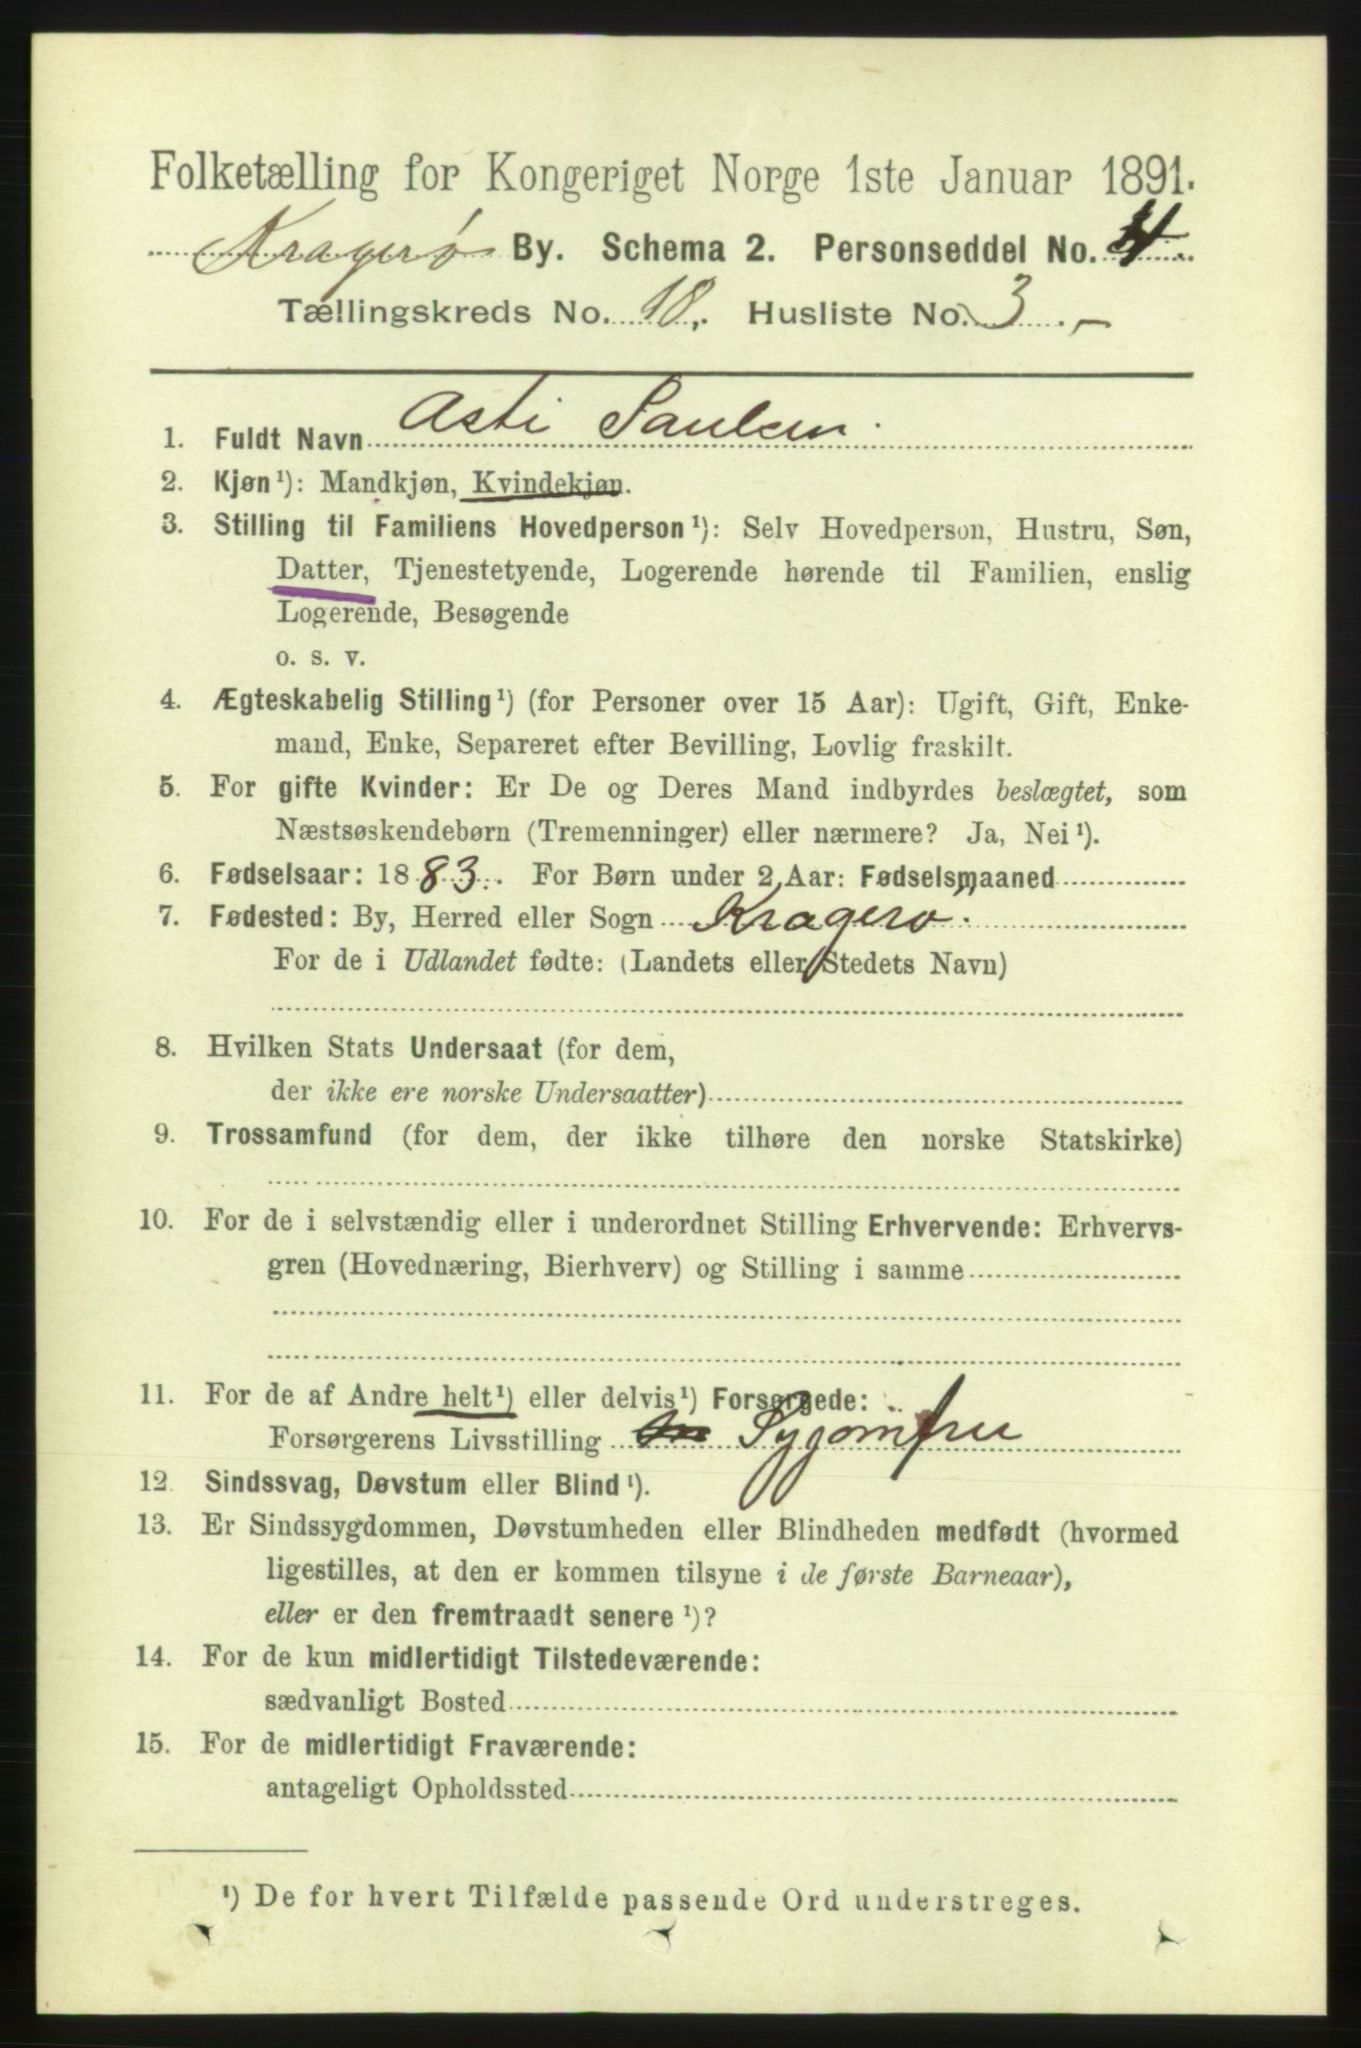 Folketælling for Kongeriget Norge 1ste Januar 1891.
Kragerø By. Schema 2. Personseddel No. 4.
Tællingskreds No. 18. Husliste No. 3.
1. Fuldt Navn Asti Paulsen.
2. Kjøn¹): Mandkjøn, Kvindekjøn.
3. Stilling til Familiens Hovedperson¹): Selv Hovedperson, Hustru, Søn,
Datter, Tjenestetyende, Logerende hørende til Familien, enslig
Logerende, Besøgende
o. s. v.
4. Ægteskabelig Stilling¹) (for Personer over 15 Aar): Ugift, Gift, Enke-
mand, Enke, Separeret efter Bevilling, Lovlig fraskilt.
5. For gifte Kvinder: Er De og Deres Mand indbyrdes beslægtet, som
Næstsøskendebørn (Tremenninger) eller nærmere? Ja, Nei¹).
6. Fødselsaar: 1883. For Børn under 2 Aar: Fødselsmaaned
7. Fødested: By, Herred eller Sogn Kragerø.
For de i Udlandet fødte: (Landets eller Stedets Navn)
8. Hvilken Stats Undersaat (for dem,
der ikke ere norske Undersaatter)
9. Trossamfund (for dem, der ikke tilhøre den norske Statskirke)
10. For de i selvstændig eller i underordnet Stilling Erhvervende: Erhvervs-
gren (Hovednæring, Bierhverv) og Stilling i samme
11. For de af Andre helt¹) eller delvis¹) Forsørgede:
Forsørgerens Livsstilling
12. Sindssvag, Døvstum eller Blind¹).
13. Er Sindssygdommen, Døvstumheden eller Blindheden medfødt (hvormed
ligestilles, at den er kommen tilsyne i de første Barneaar),
eller er den fremtraadt senere¹)?
14. For de kun midlertidigt Tilstedeværende:
sædvanligt Bosted
15. For de midlertidigt Fraværende:
antageligt Opholdssted
¹) De for hvert Tilfælde passende Ord understreges.